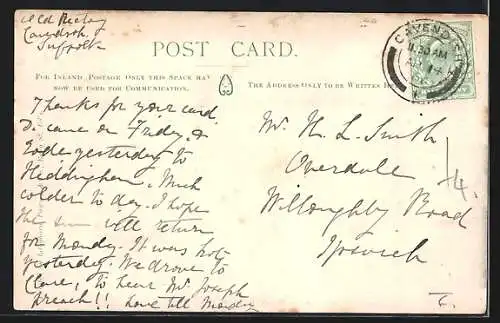 Old Rectory
Cavendish
Suffolk
POST CARD.
FOR INLAND POSTAGE ONLY THIS SPACE MAY
NOW BE USED FOR COMMUNICATION.
THE ADDRESS ONLY TO BE WRITTEN
CAVENDISH
11.30 AM
Thanks for your card
I came on Friday, &
rode yesterday to
Heddingham. Much
colder to day. I hope
the will return
for Monday. It was hot
yesterday. We drove to
Clare, to hear Mr. Joseph
preach!! Love till Monday
Mr. H. L. Smith
Overdale
Willoughby Road
Ipswich